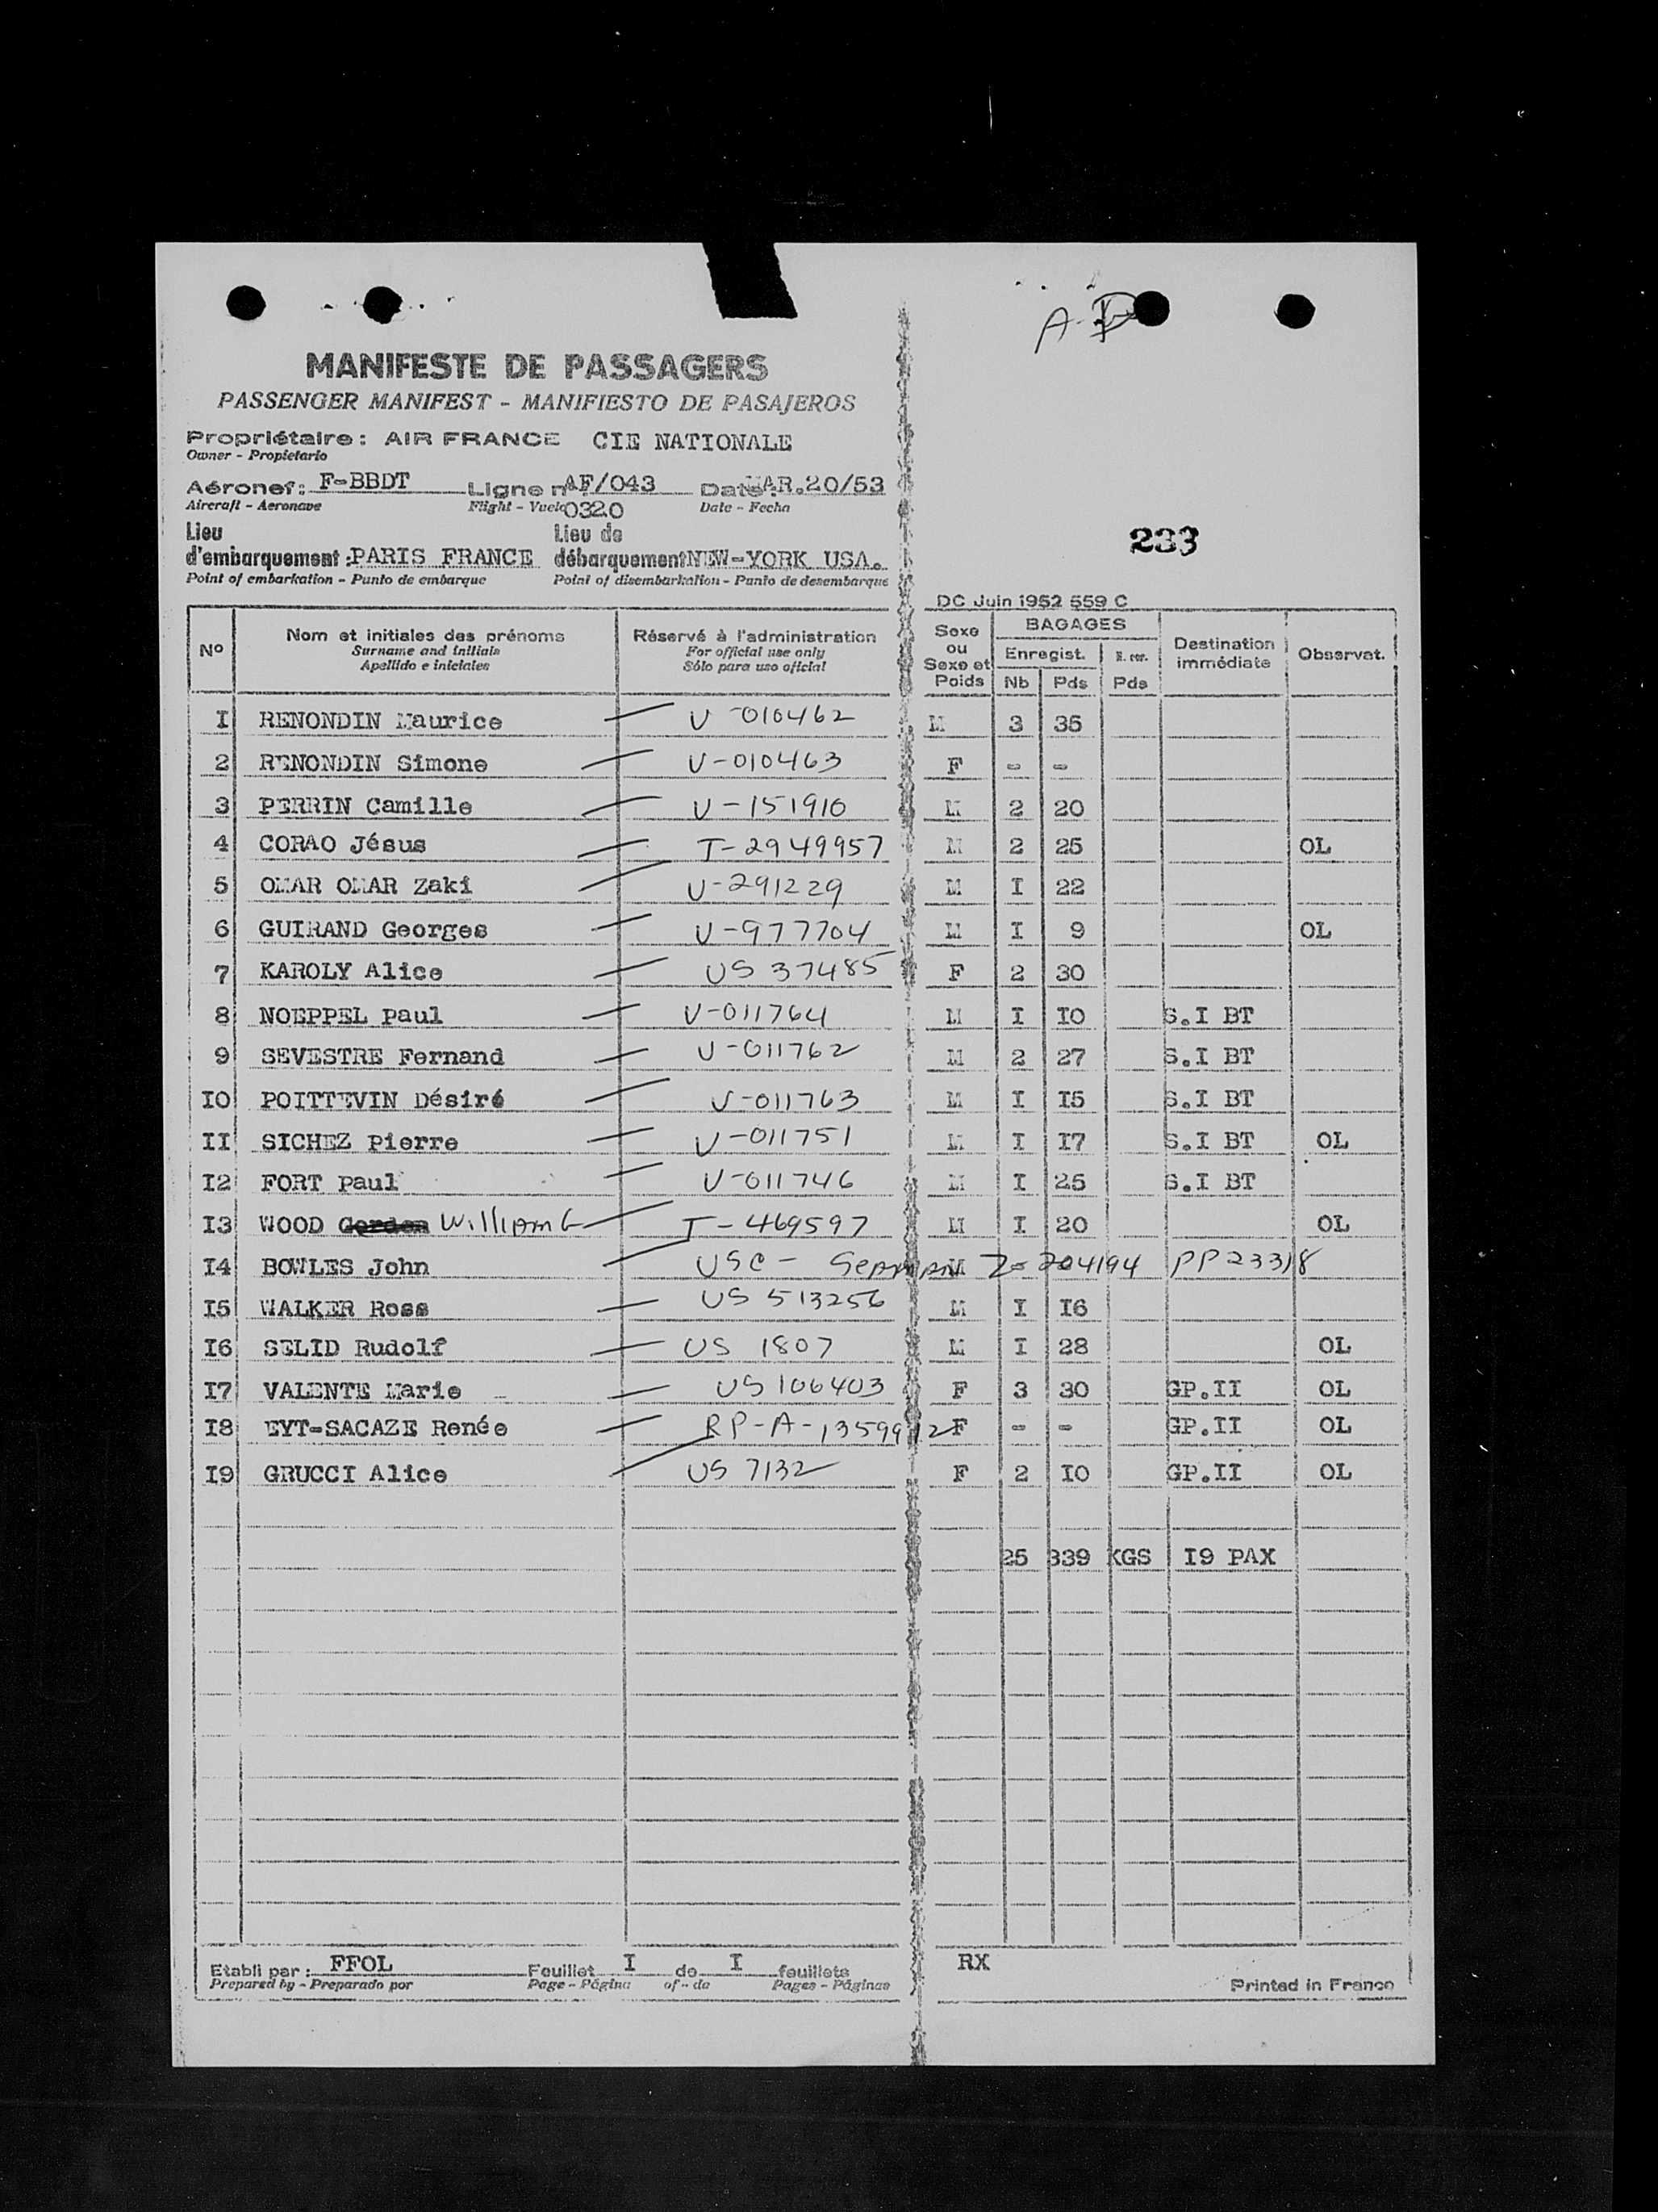 MANIFESTE DE PASSAGERS
PASSENGER MANIFEST - MANIFIESTO DE PASAJEROS
Propriétaire : AIR FRANCE CIE NATIONALE
Owner - Propietario
Aéronef : F-BBDT Ligne nº AF/043 Date : MAR.20/53
Aircraft - Aeronave Flight - Vuelo 0320 Date - Fecha
233
Lieu d'embarquement : PARIS FRANCE Lieu de débarquement NEW-YORK USA.
Point of embarkation - Punto de embarque Point of disembarkation - Punto de desembarque
DC Juin 1952 559 C
Nº Nom et initiales des prénoms Réservé à l'administration Sexe ou Sexe et Poids BAGAGES Destination immédiate Observat.
Surname and initials For official use only Enregist. N. enr.
Apellido e iniciales Sólo para uso oficial Nb Pds Pds
I RENONDIN Maurice V-010462 M 3 35
2 RENONDIN Simone V-010463 F - -
3 PERRIN Camille V-151910 M 2 20
4 CORAO Jésus T-2949957 M 2 25 OL
5 OMAR OMAR Zaki V-291229 M I 22
6 GUIRAND Georges V-977704 M I 9 OL
7 KAROLY Alice US 37485 F 2 30
8 NOEPPEL Paul V-011764 M I IO S.I BT
9 SEVESTRE Fernand V-011762 M 2 27 S.I BT
IO POITTEVIN Désiré V-011763 M I I5 S.I BT
II SICHEZ Pierre V-011751 M I I7 S.I BT OL
I2 FORT Paul V-011746 M I 25 S.I BT
I3 WOOD Gordon William G T-469597 M I 20 OL
I4 BOWLES John USC - Seaman M Z-204194 PP 23318
I5 WALKER Ross US 513256 M I I6
I6 SELID Rudolf US 1807 M I 28 OL
I7 VALENTE Marie US 106403 F 3 30 GP.II OL
I8 EYT-SACAZE Renée RP-A-1359912 F - - GP.II OL
I9 GRUCCI Alice US 7132 F 2 IO GP.II OL
25 339 KGS I9 PAX
Etabli par : FFOL Feuillet I de I feuillets RX
Prepared by - Preparado por Page - Página of - de Pages - Páginas
Printed in France